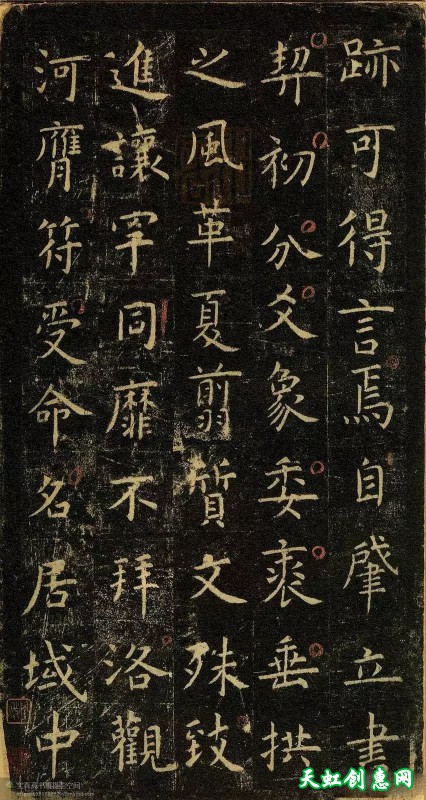 跡可得言焉自肇立書
契初分爻象委裘垂拱
之風革夏翦質文殊致
進讓罕同靡不拜洛觀
河膺符受命名居域中
天虹创惠网